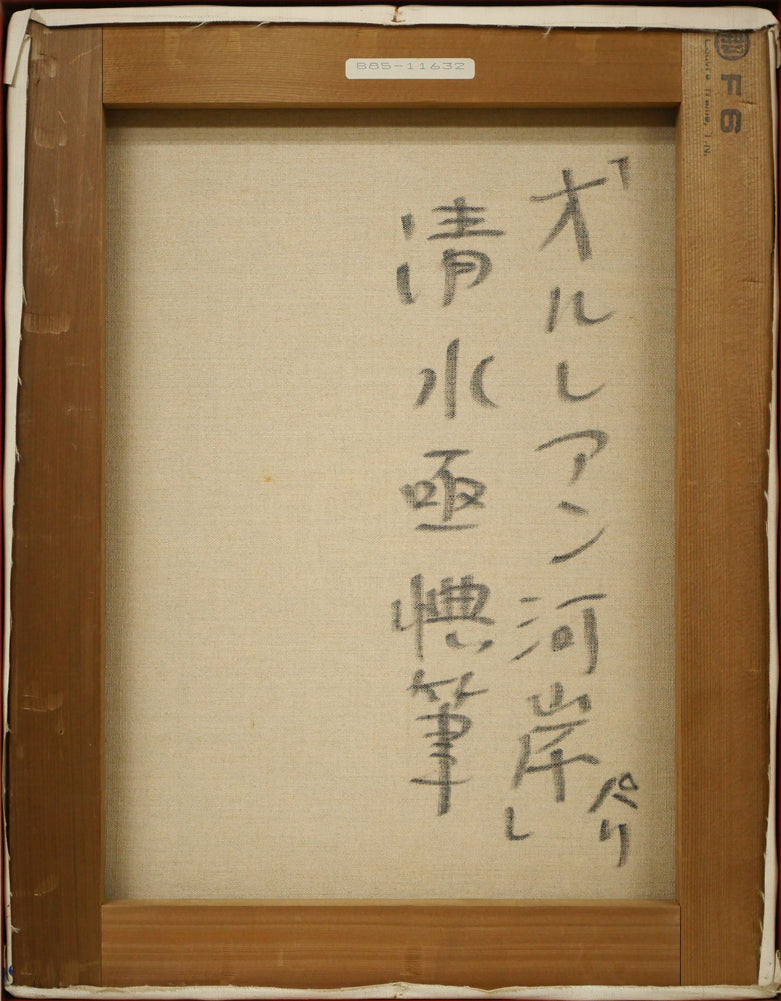 885-11632
F6
「オルレアン河岸」
パリ
清水亟筆